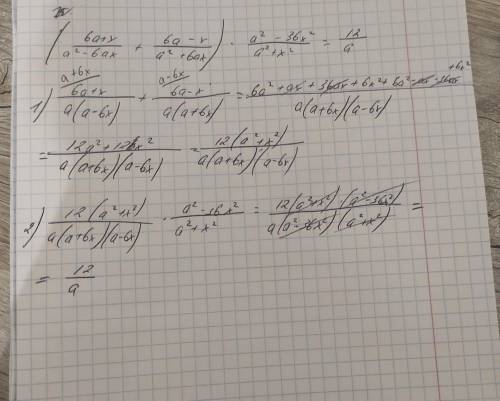 ( (6a+x)/(a²-6ax) + (6a-x)/(a²+6ax) ) · (a²-36x²)/(a²+x²) = 12/a
1) (6a+x)/(a(a-6x)) ^(a+6x) + (6a-x)/(a(a+6x)) ^(a-6x) = (6a²+ax+36ax+6x²+6a²-ax-36ax+6x²)/(a(a+6x)(a-6x))
= (12a²+12x²)/(a(a+6x)(a-6x)) = 12(a²+x²)/(a(a+6x)(a-6x))
2) 12(a²+x²)/(a(a+6x)(a-6x)) · (a²-36x²)/(a²+x²) = 12(a²+x²)·(a²-36x²)/(a(a²-36x²)(a²+x²)) =
= 12/a